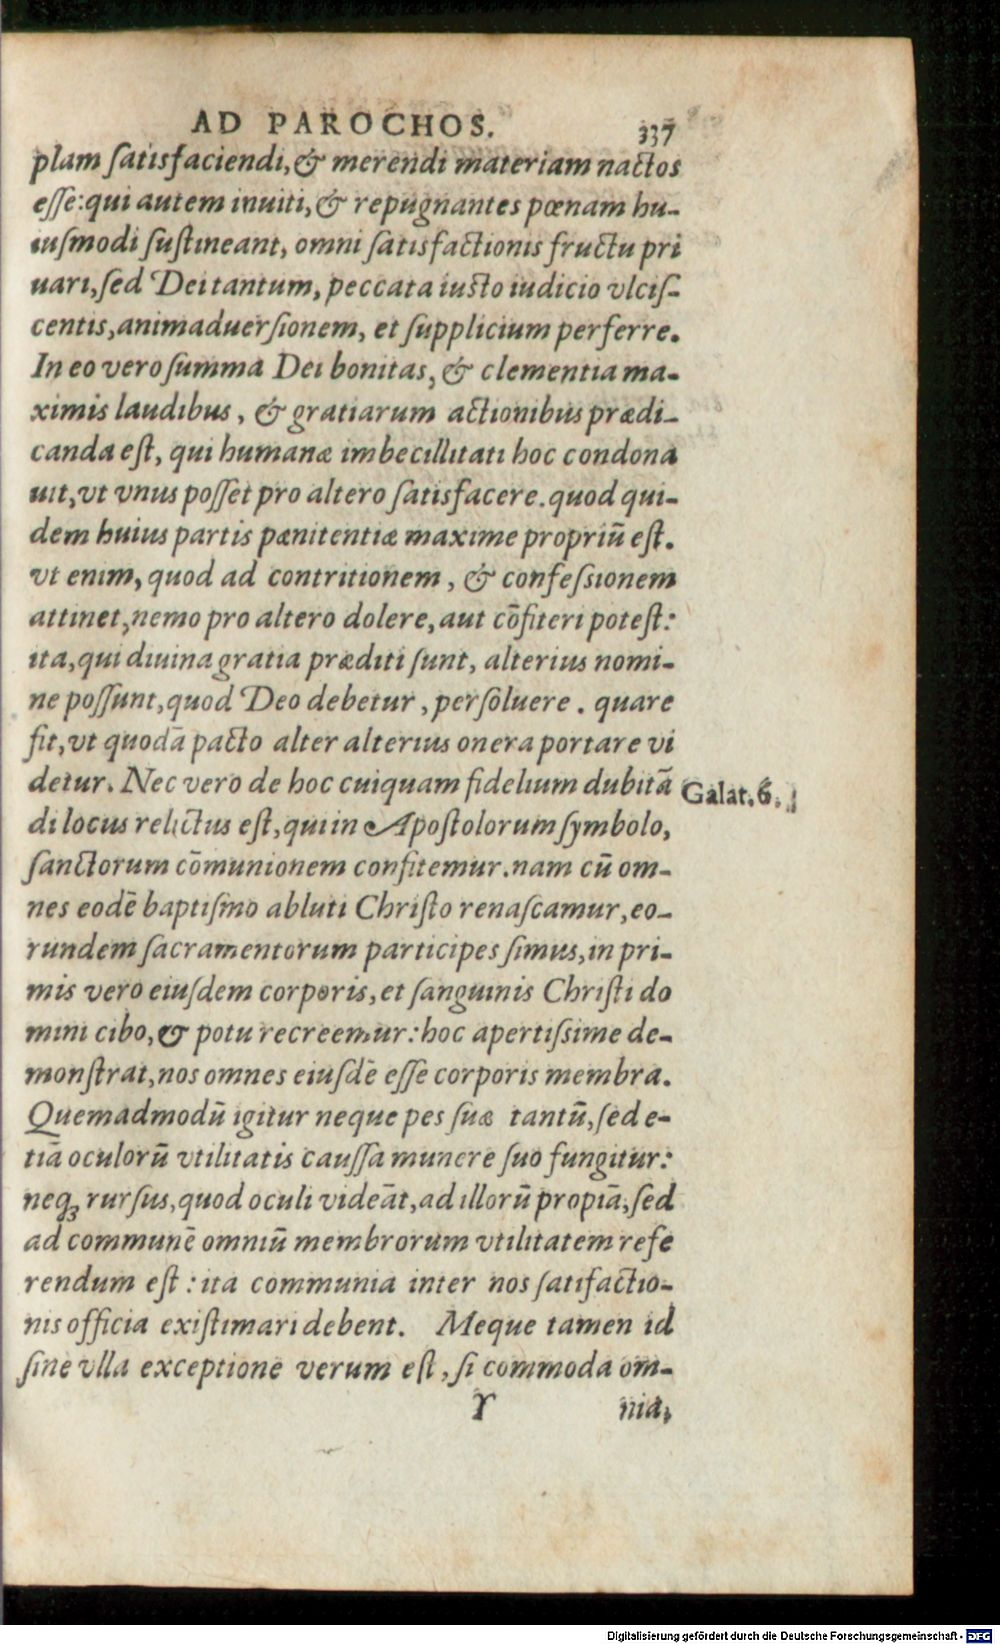 AD PAROCHOS. 337
plam satisfaciendi, & merendi materiam nactos
esse: qui autem inuiti, & repugnantes pœnam hu-
iusmodi sustineant, omni satisfactionis fructu pri
uari, sed Dei tantum, peccata iusto iudicio vlcis-
centis, animaduersionem, et supplicium perferre.
In eo vero summa Dei bonitas, & clementia ma-
ximis laudibus, & gratiarum actionibus prædi-
canda est, qui humanæ imbecillitati hoc condona
uit, vt vnus posset pro altero satisfacere. quod qui-
dem huius partis pænitentiæ maxime propriū est.
vt enim, quod ad contritionem, & confessionem
attinet, nemo pro altero dolere, aut cōfiteri potest:
ita, qui diuina gratia præditi sunt, alterius nomi-
ne possunt, quod Deo debetur, persoluere. quare
fit, vt quodā pacto alter alterius onera portare vi
detur. Nec vero de hoc cuiquam fidelium dubitā
Galat. 6.
di locus relictus est, qui in Apostolorum symbolo,
sanctorum cōmunionem confitemur. nam cū om-
nes eodē baptismo abluti Christo renascamur, eo-
rundem sacramentorum participes simus, in pri-
mis vero eiusdem corporis, et sanguinis Christi do
mini cibo, & potu recreemur: hoc apertissime de-
monstrat, nos omnes eiusdē esse corporis membra.
Quemadmodū igitur neque pes suæ tantū, sed e-
tiā oculorū vtilitatis caussa munere suo fungitur:
neq; rursus, quod oculi videāt, ad illorū propiā, sed
ad communē omniū membrorum vtilitatem refe
rendum est: ita communia inter nos satifactio-
nis officia existimari debent. Meque tamen id
sine vlla exceptione verum est, si commoda om-
Y nia,
Digitalisierung gefördert durch die Deutsche Forschungsgemeinschaft - DFG